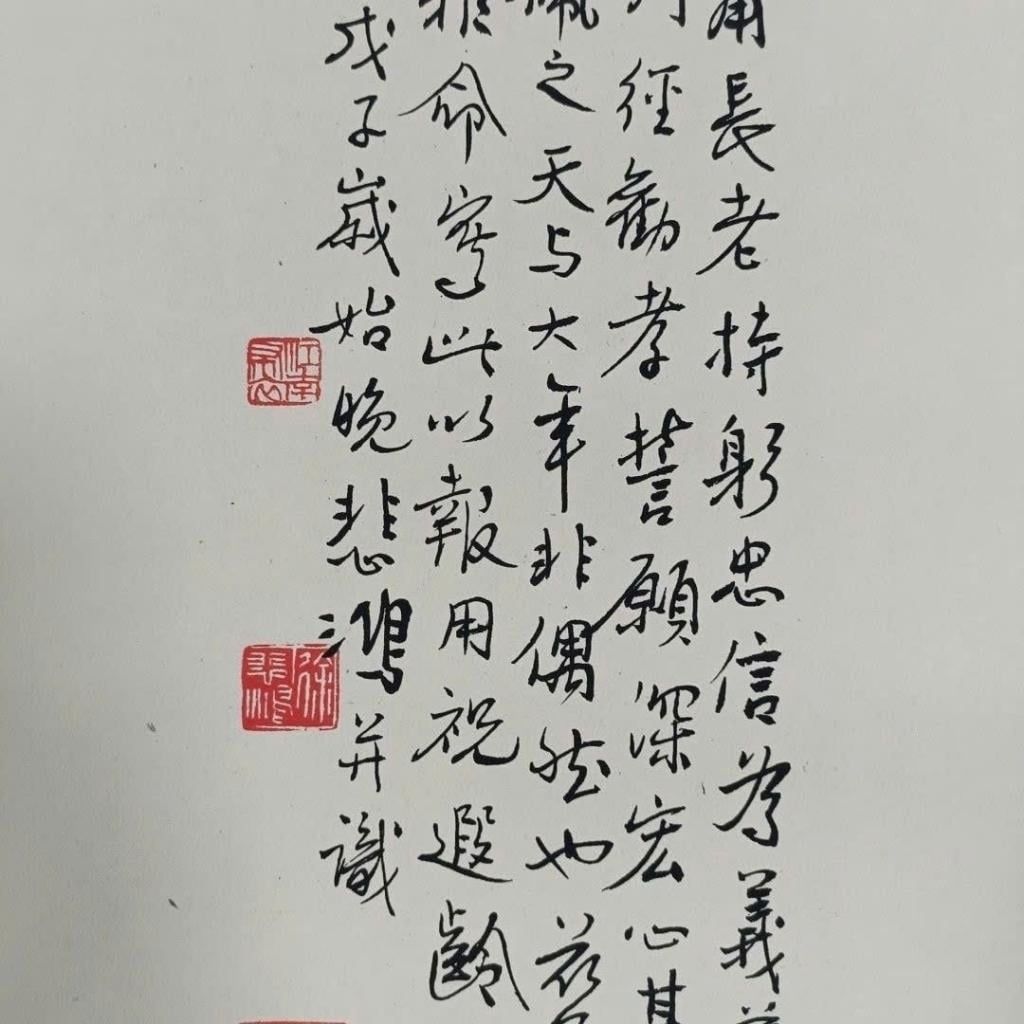 甫長老持躬忠信為義
徑勸孝誓願深宏心甚
佩之天与大年非偶然也茲
命寫此以報用祝遐齡
戊子歲始晚悲鴻并識
徐悲鴻